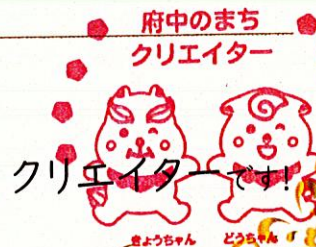 府中のまち
クリエイター
クリエイターです!
きょうちゃん
どうちゃん